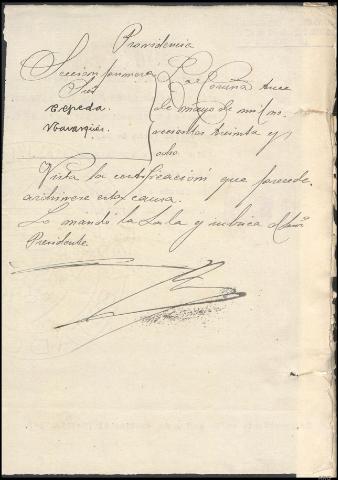 Providencia
Sección primera
Sres
Cepeda.
La Coruña once
de mayo de mil no-
vecientos treinta y
ocho.
Vista la certificación que precede,
archívese esta causa.
Lo mandó la Sala y rubrica el
Presidente.